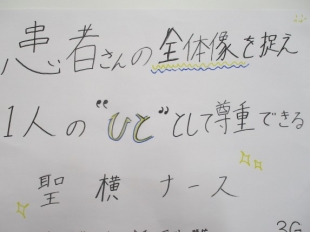 患者さんの全体像を捉え
1人の“ひと”として尊重できる
聖横ナース
3G